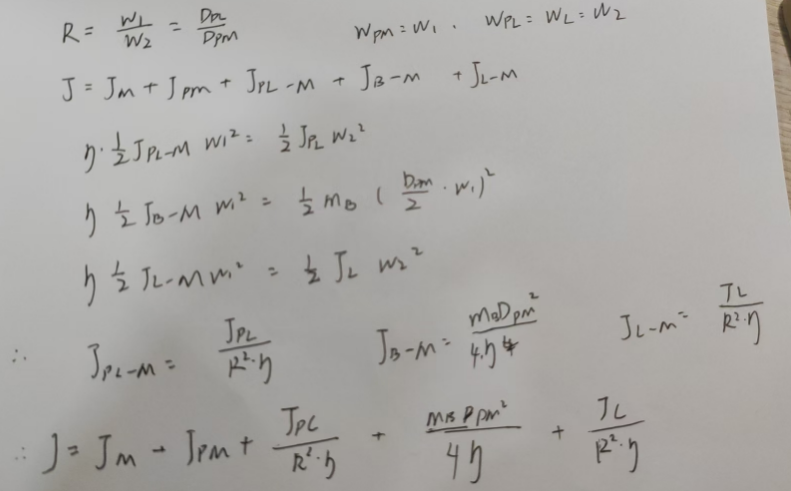 R = W1/W2 = DPL/DPM    WPM = W1 . WPL = WL = W2
J = JM + JPM + JPL-M + JB-M + JL-M
η · 1/2 JPL-M W1² = 1/2 JPL W2²
η 1/2 JB-M W1² = 1/2 MB (DPM/2 · W1)²
η 1/2 JL-M W1² = 1/2 JL W2²
∴ JPL-M = JPL/R²·η    JB-M = MBDPM²/4·η    JL-M = JL/R²·η
∴ J = JM - JPM + JPL/R²·η + MBDPM²/4η + JL/R²·η